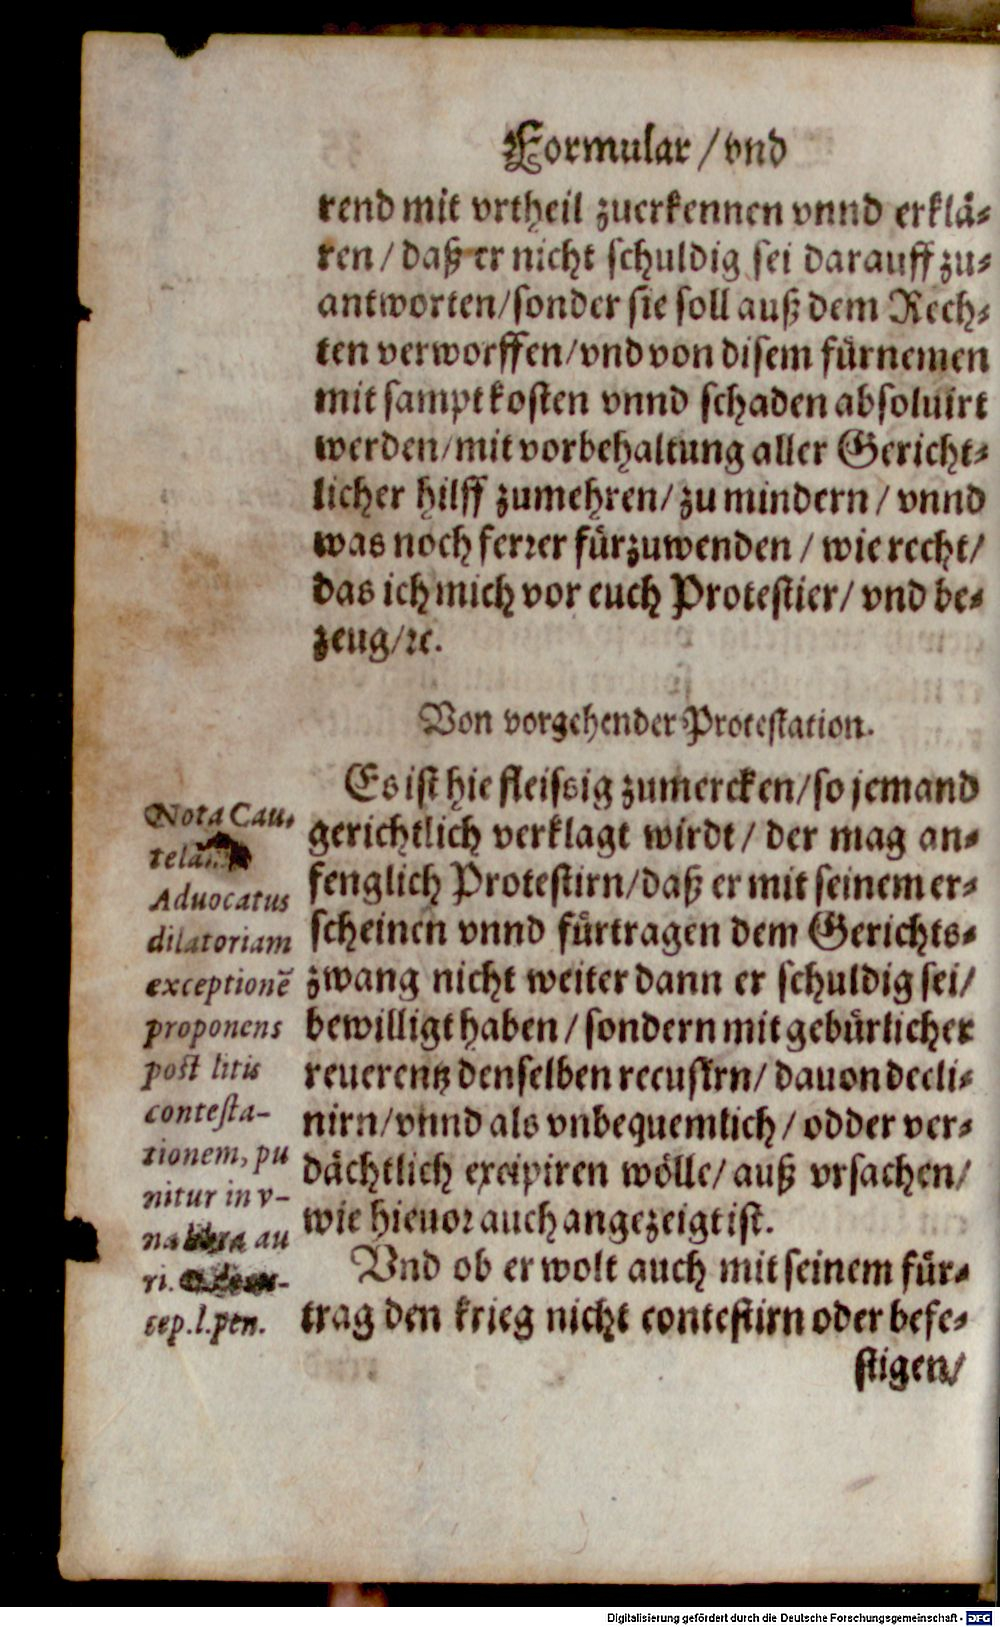 Formular / vnd
rend mit vrtheil zuerkennen vnnd erklä-
ren / daß er nicht schuldig sei darauff zu-
antworten/sonder sie soll auß dem Rech-
ten verworffen/vnd von disem fürnemen
mit sampt kosten vnnd schaden absoluirt
werden/mit vorbehaltung aller Gericht-
licher hilff zumehren/ zu mindern / vnnd
was noch ferrer fürzuwenden / wie recht/
das ich mich vor euch Protestier/ vnd be-
zeug/ꝛc.
Von vorgehender Protestation.
Es ist hie fleissig zumercken/so jemand
gerichtlich verklagt wirdt / der mag an-
fenglich Protestirn/daß er mit seinem er-
scheinen vnnd fürtragen dem Gerichts-
zwang nicht weiter dann er schuldig sei/
bewilligt haben / sondern mit gebürlicher
reuerentz denselben recusirn/ dauon decli-
nirn/vnnd als vnbequemlich / odder ver-
dächtlich excipiren wölle/ auß vrsachen/
wie hieuor auch angezeigt ist.
Vnd ob er wolt auch mit seinem für-
trag den krieg nicht contestirn oder befe-
stigen/
Nota Cau-
telā.
Aduocatus
dilatoriam
exceptionē
proponens
post litis
contesta-
tionem, pu
nitur in v-
na au
ri.
cep.l.pen.
Digitalisierung gefördert durch die Deutsche Forschungsgemeinschaft - DFG